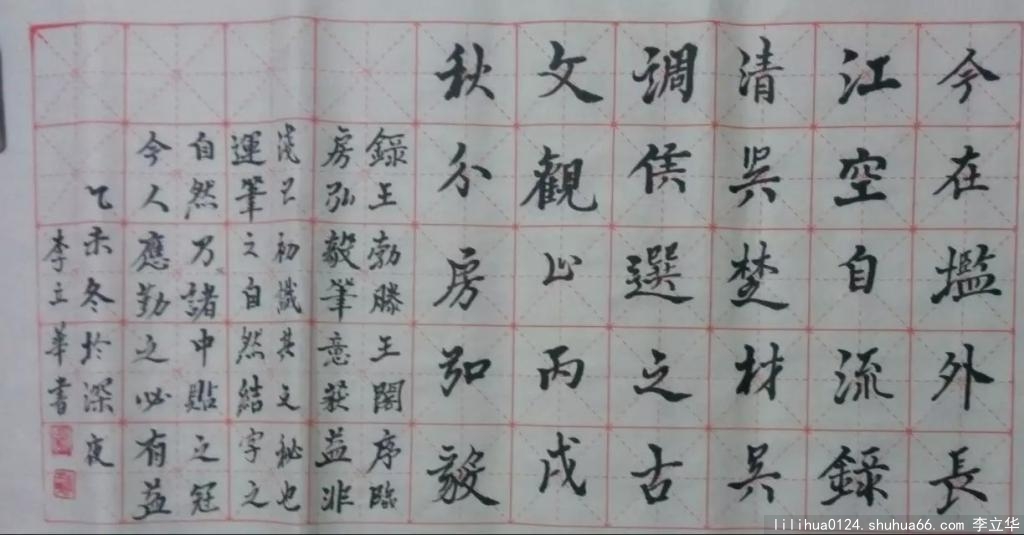 今在壏外長
江空自流錄
清吳楚材吳
調侯選之古
文觀止丙戌
秋分房弘毅
錄王勃滕王閣序臨
房弘毅筆意获益非
浅已初識其文秘也
運筆之自然結字之
自然乃諸中點之冠
今人應勤之必有益
乞未冬於深夜
李立華書
lilihua0124.shuhua66.com 李立华